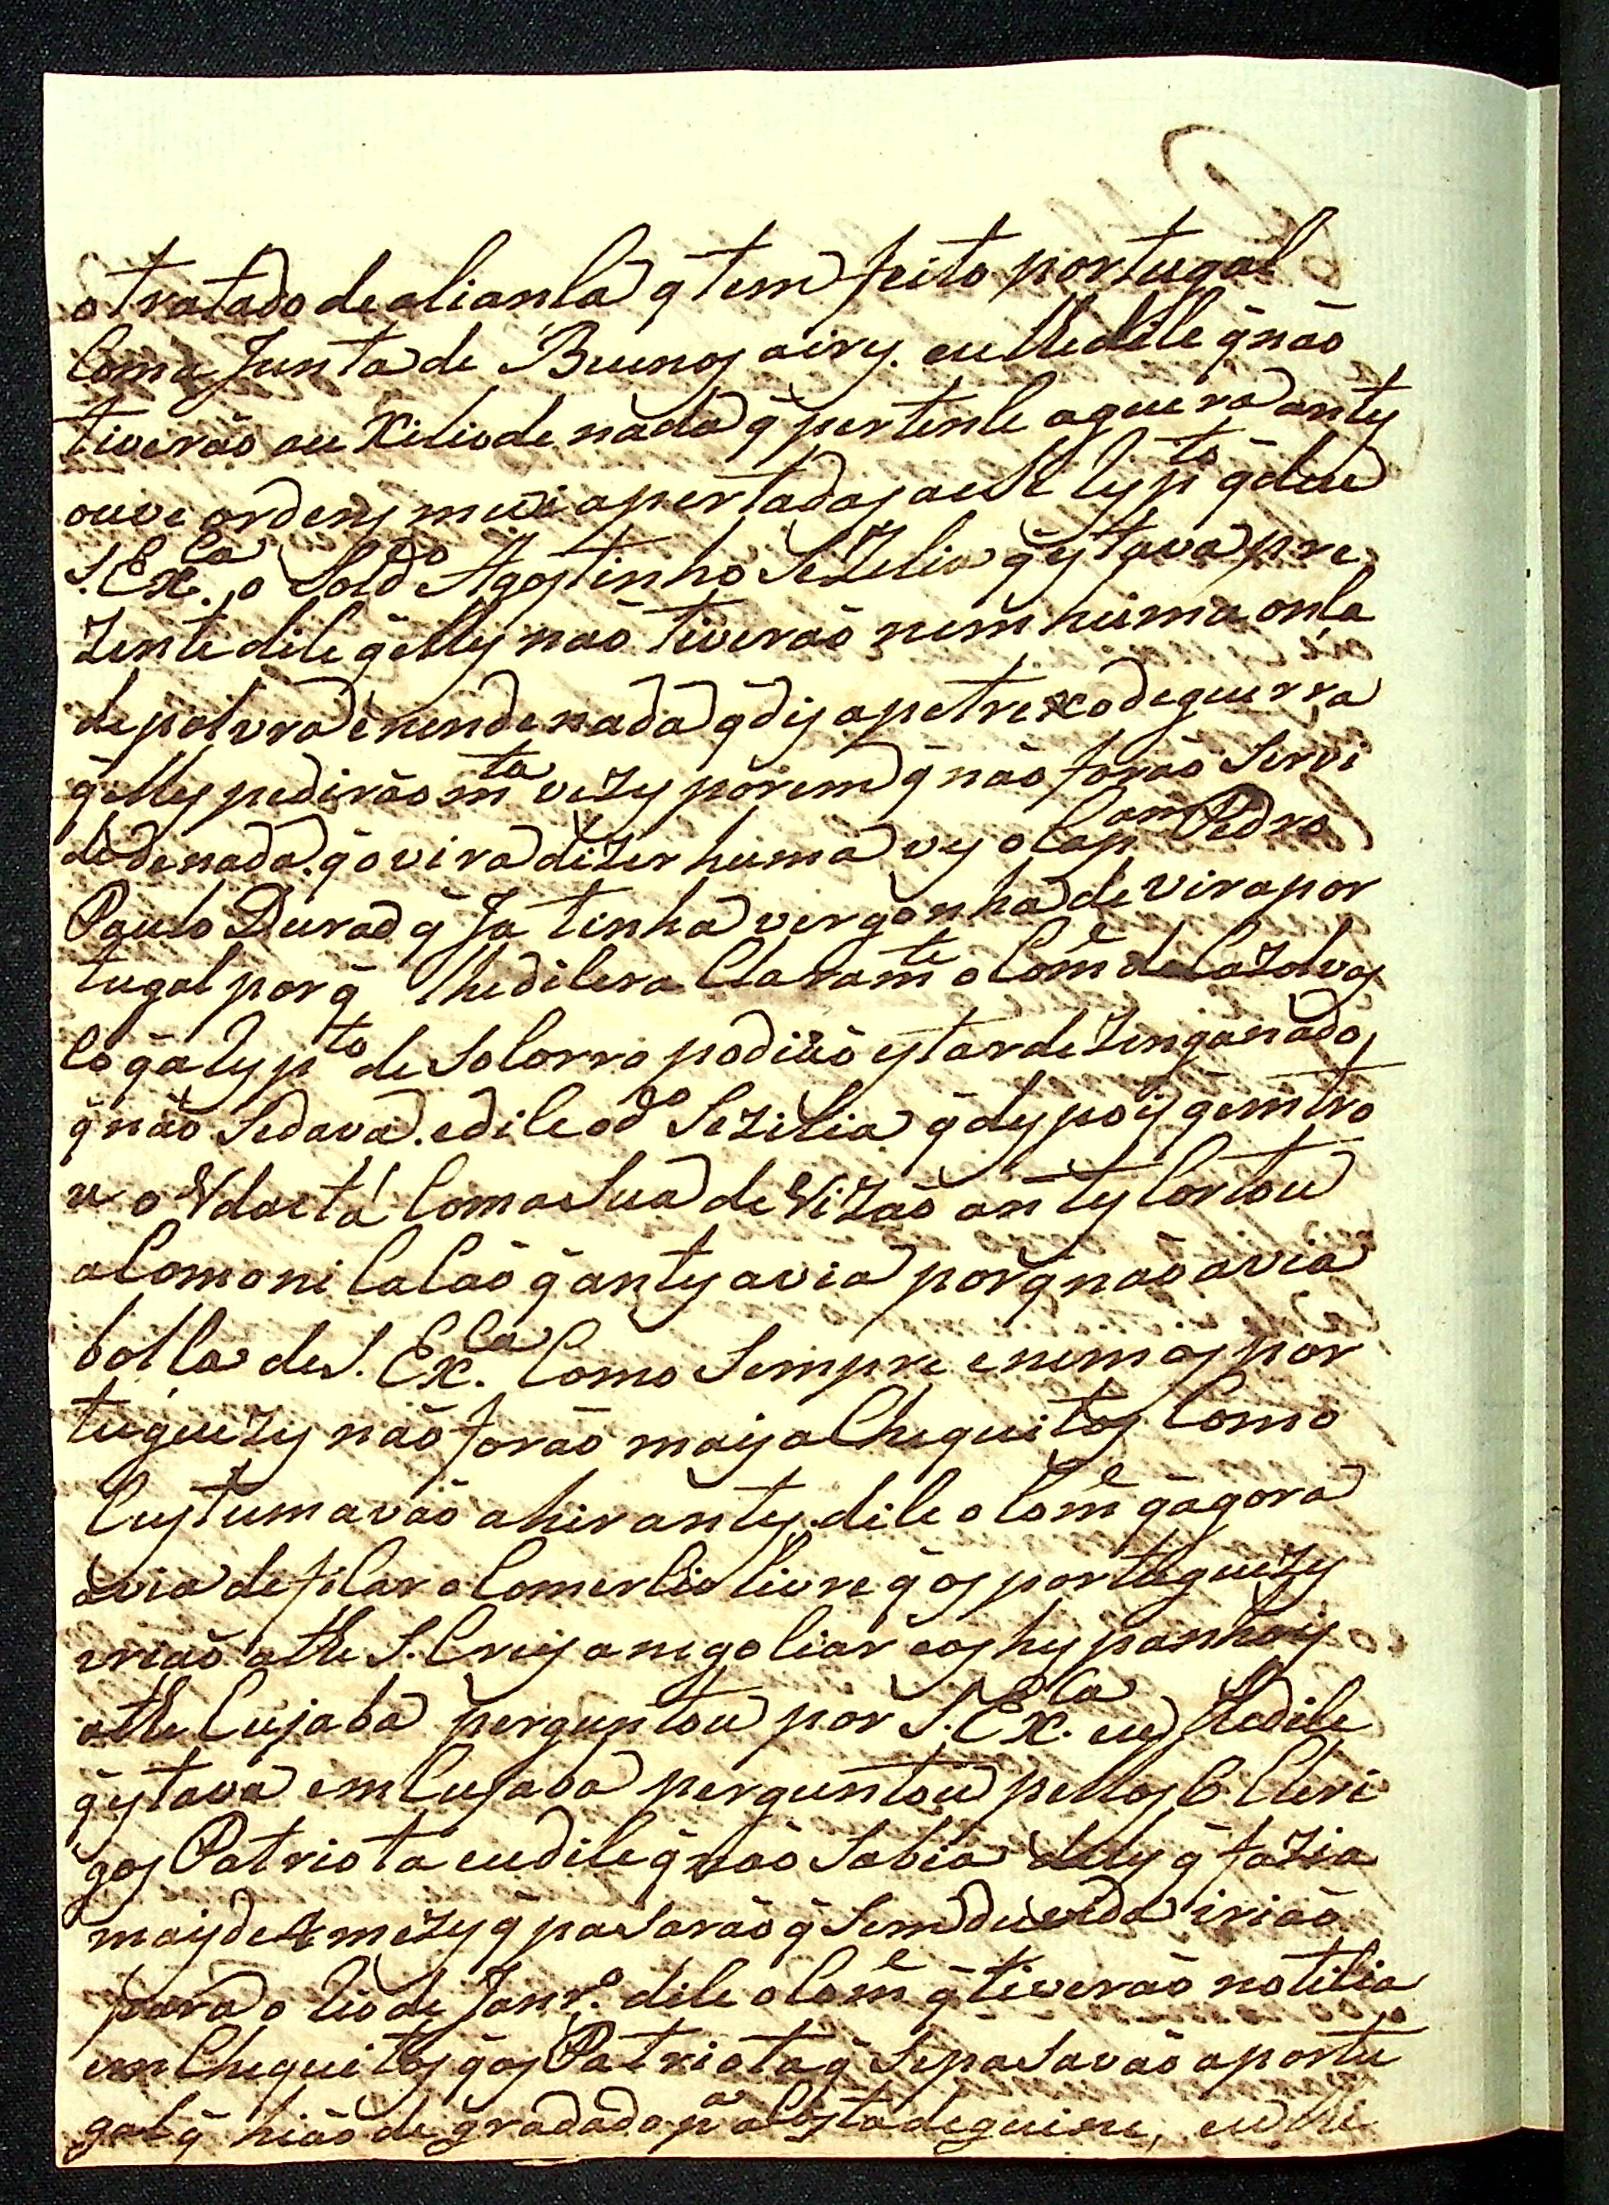 o tratado de aliança q̃ tem feito portugal
Com a Junta de Buenos airy. eu lhe dise q̃ não
tiverão au xilio de nada q̃ pertense aguera anty
ouve ordens mui apertadas a esse respto q̃ deu
S. Exca. o Soldo Agostinho Sezilio q̃ estava pre
zente dise q̃ elles não tiverão nem huma onsa
de polvra e nen de nada q̃ dis apetrexo de guerra
q̃ elles pedirão mta vezes porem q̃ não forão Servi
do de nada. q̃ ovira dizer huma ves o Capam Pedro
Paulo Durad q̃ Ja tinha vergonha de vir a por
tugal por q̃ lhe disera Claramte o Come de Cazalvas
co q̃ a respto de Socorro podião estar dezenganados
q̃ não Se dava. e dise o do Sezilia q̃ despois q̃ entro
u o Vdaeta Com a Sua de Vizão antes Cortou
a Comoni Cacão q̃ antes avia por q̃ não avia
bolsa de S. Exca. Como Sempre e nem os por
tuguezes não forão mais a Chequitos Como
Custumavão a hir antes. dise o Come q̃ agora
avia de ficar o Comercio livre q̃ os portuguezes
irião athe S. Crus a negociar e os hespanhois
athe Cujaba perguntou por S. Exca. eu lhe dise
q̃ estava em Cujaba perguntou pellos 6 Cleri
gos Patriota eu dise q̃ não Sabia delles q̃ fazia
mais de 4 mezes q̃ pasarão q̃ Sem duvida irião
para o Rio de Janro. dise o Come q̃ tiverão noticia
em Chequitos q̃ os Patriota q̃ Se pasavão a portu
gal q̃ hião de gradado pa a Costa de guine, eu lhe